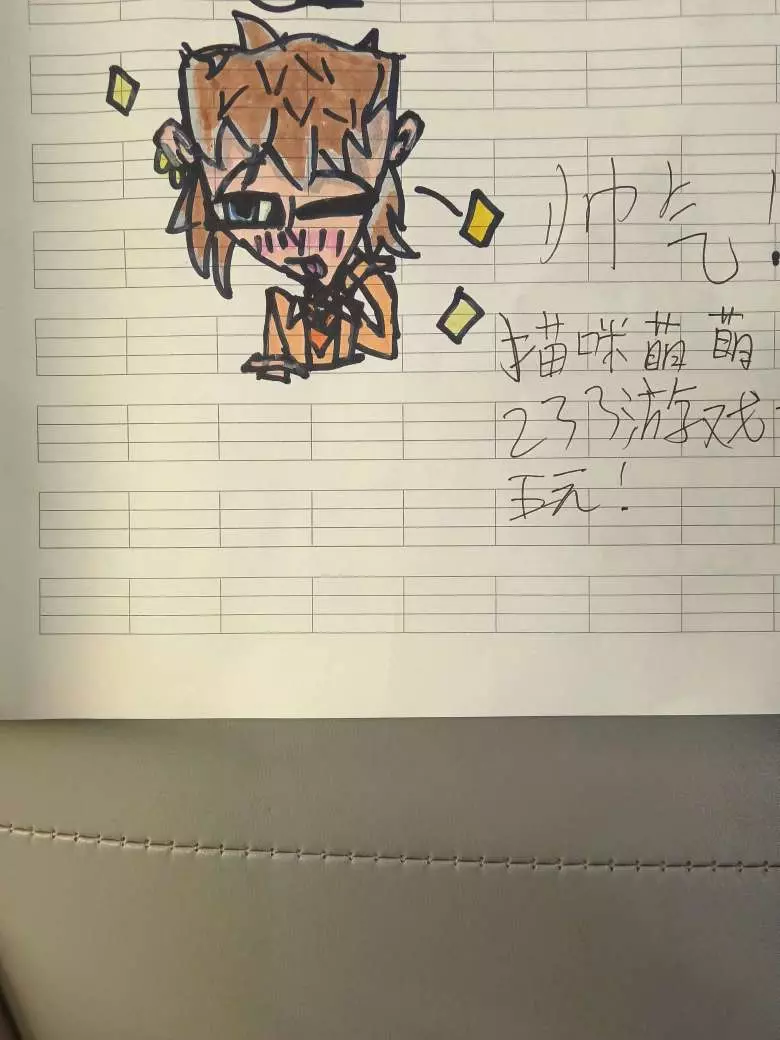 帅气!
猫咪萌萌
233游戏
玩!